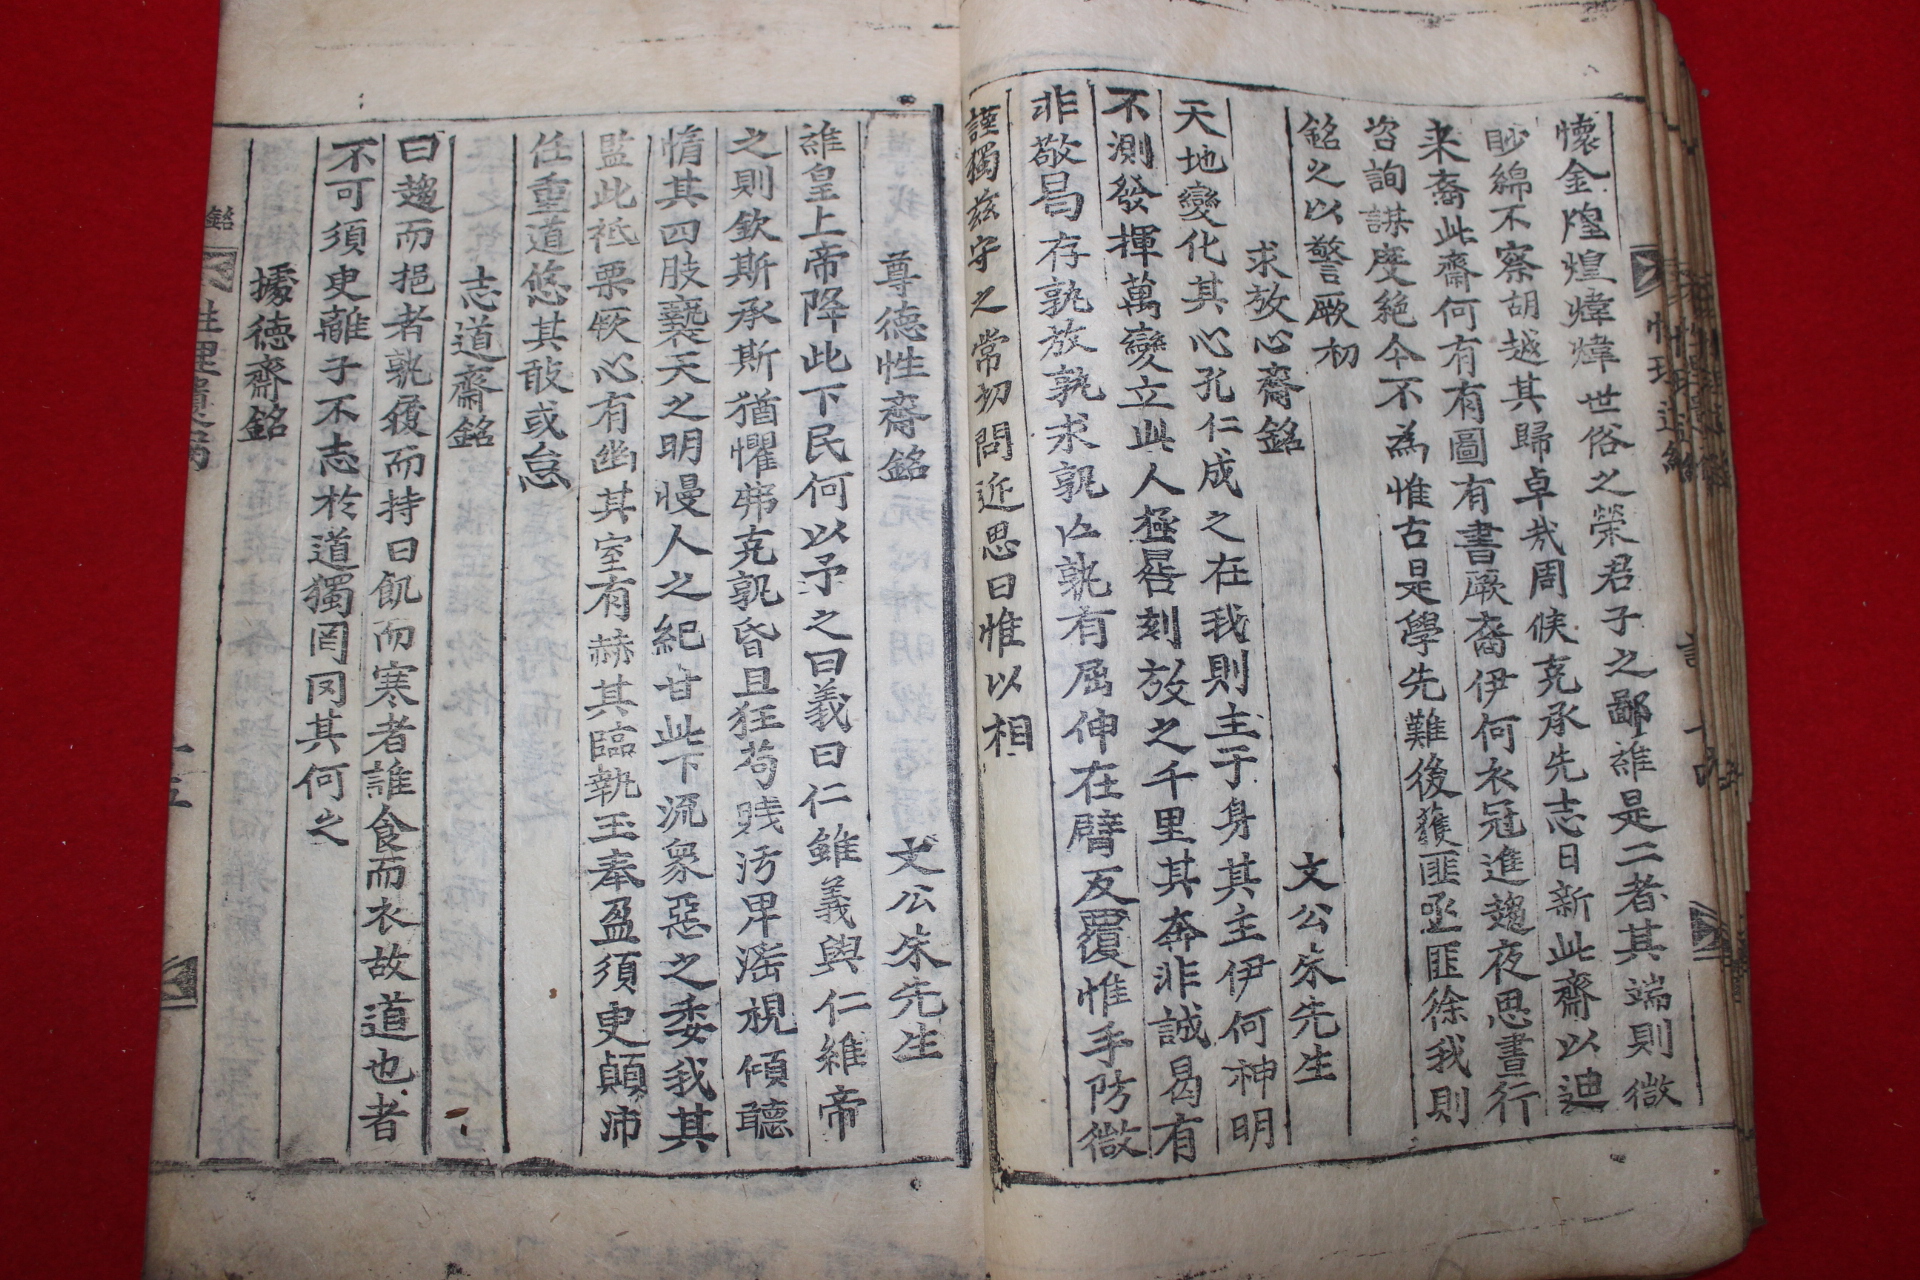 懷金煌煌煒煒世俗之榮君子之鄙維是二者其端則微
眇綿不察胡越其歸卓哉周侯克承先志日新此齋以迪
来裔此齋何有有圖有書厥裔伊何衣冠進趨夜思晝行
咨詢謀度絶今不為惟古是學先難後獲匪亟匪徐我則
銘之以警厥初
求放心齋銘 文公朱先生
天地變化其心孔仁成之在我則主于身其主伊何神明
不測發揮萬變立此人極晷刻放之千里其奔非誠曷有
非敬曷存孰放孰求孰亡孰有屈伸在臂反覆惟手防微
謹獨玆守之常切問近思曰惟以相
尊德性齋銘 文公朱先生
維皇上帝降此下民何以予之曰義曰仁雖義與仁維帝
之則欽斯承斯猶懼弗克孰昏且狂苟賤汚卑滛視傾聽
惰其四肢褻天之明慢人之紀甘此下流衆惡之委我其
監此祗栗厥心有幽其室有赫其臨執玉奉盈須臾顛沛
任重道悠其敢或怠
志道齋銘
曰趨而挹者孰履而持曰飢而寒者誰食而衣故道也者
不可須臾離子不志於道獨罔罔其何之
據德齋銘
銘
性理遺
十五